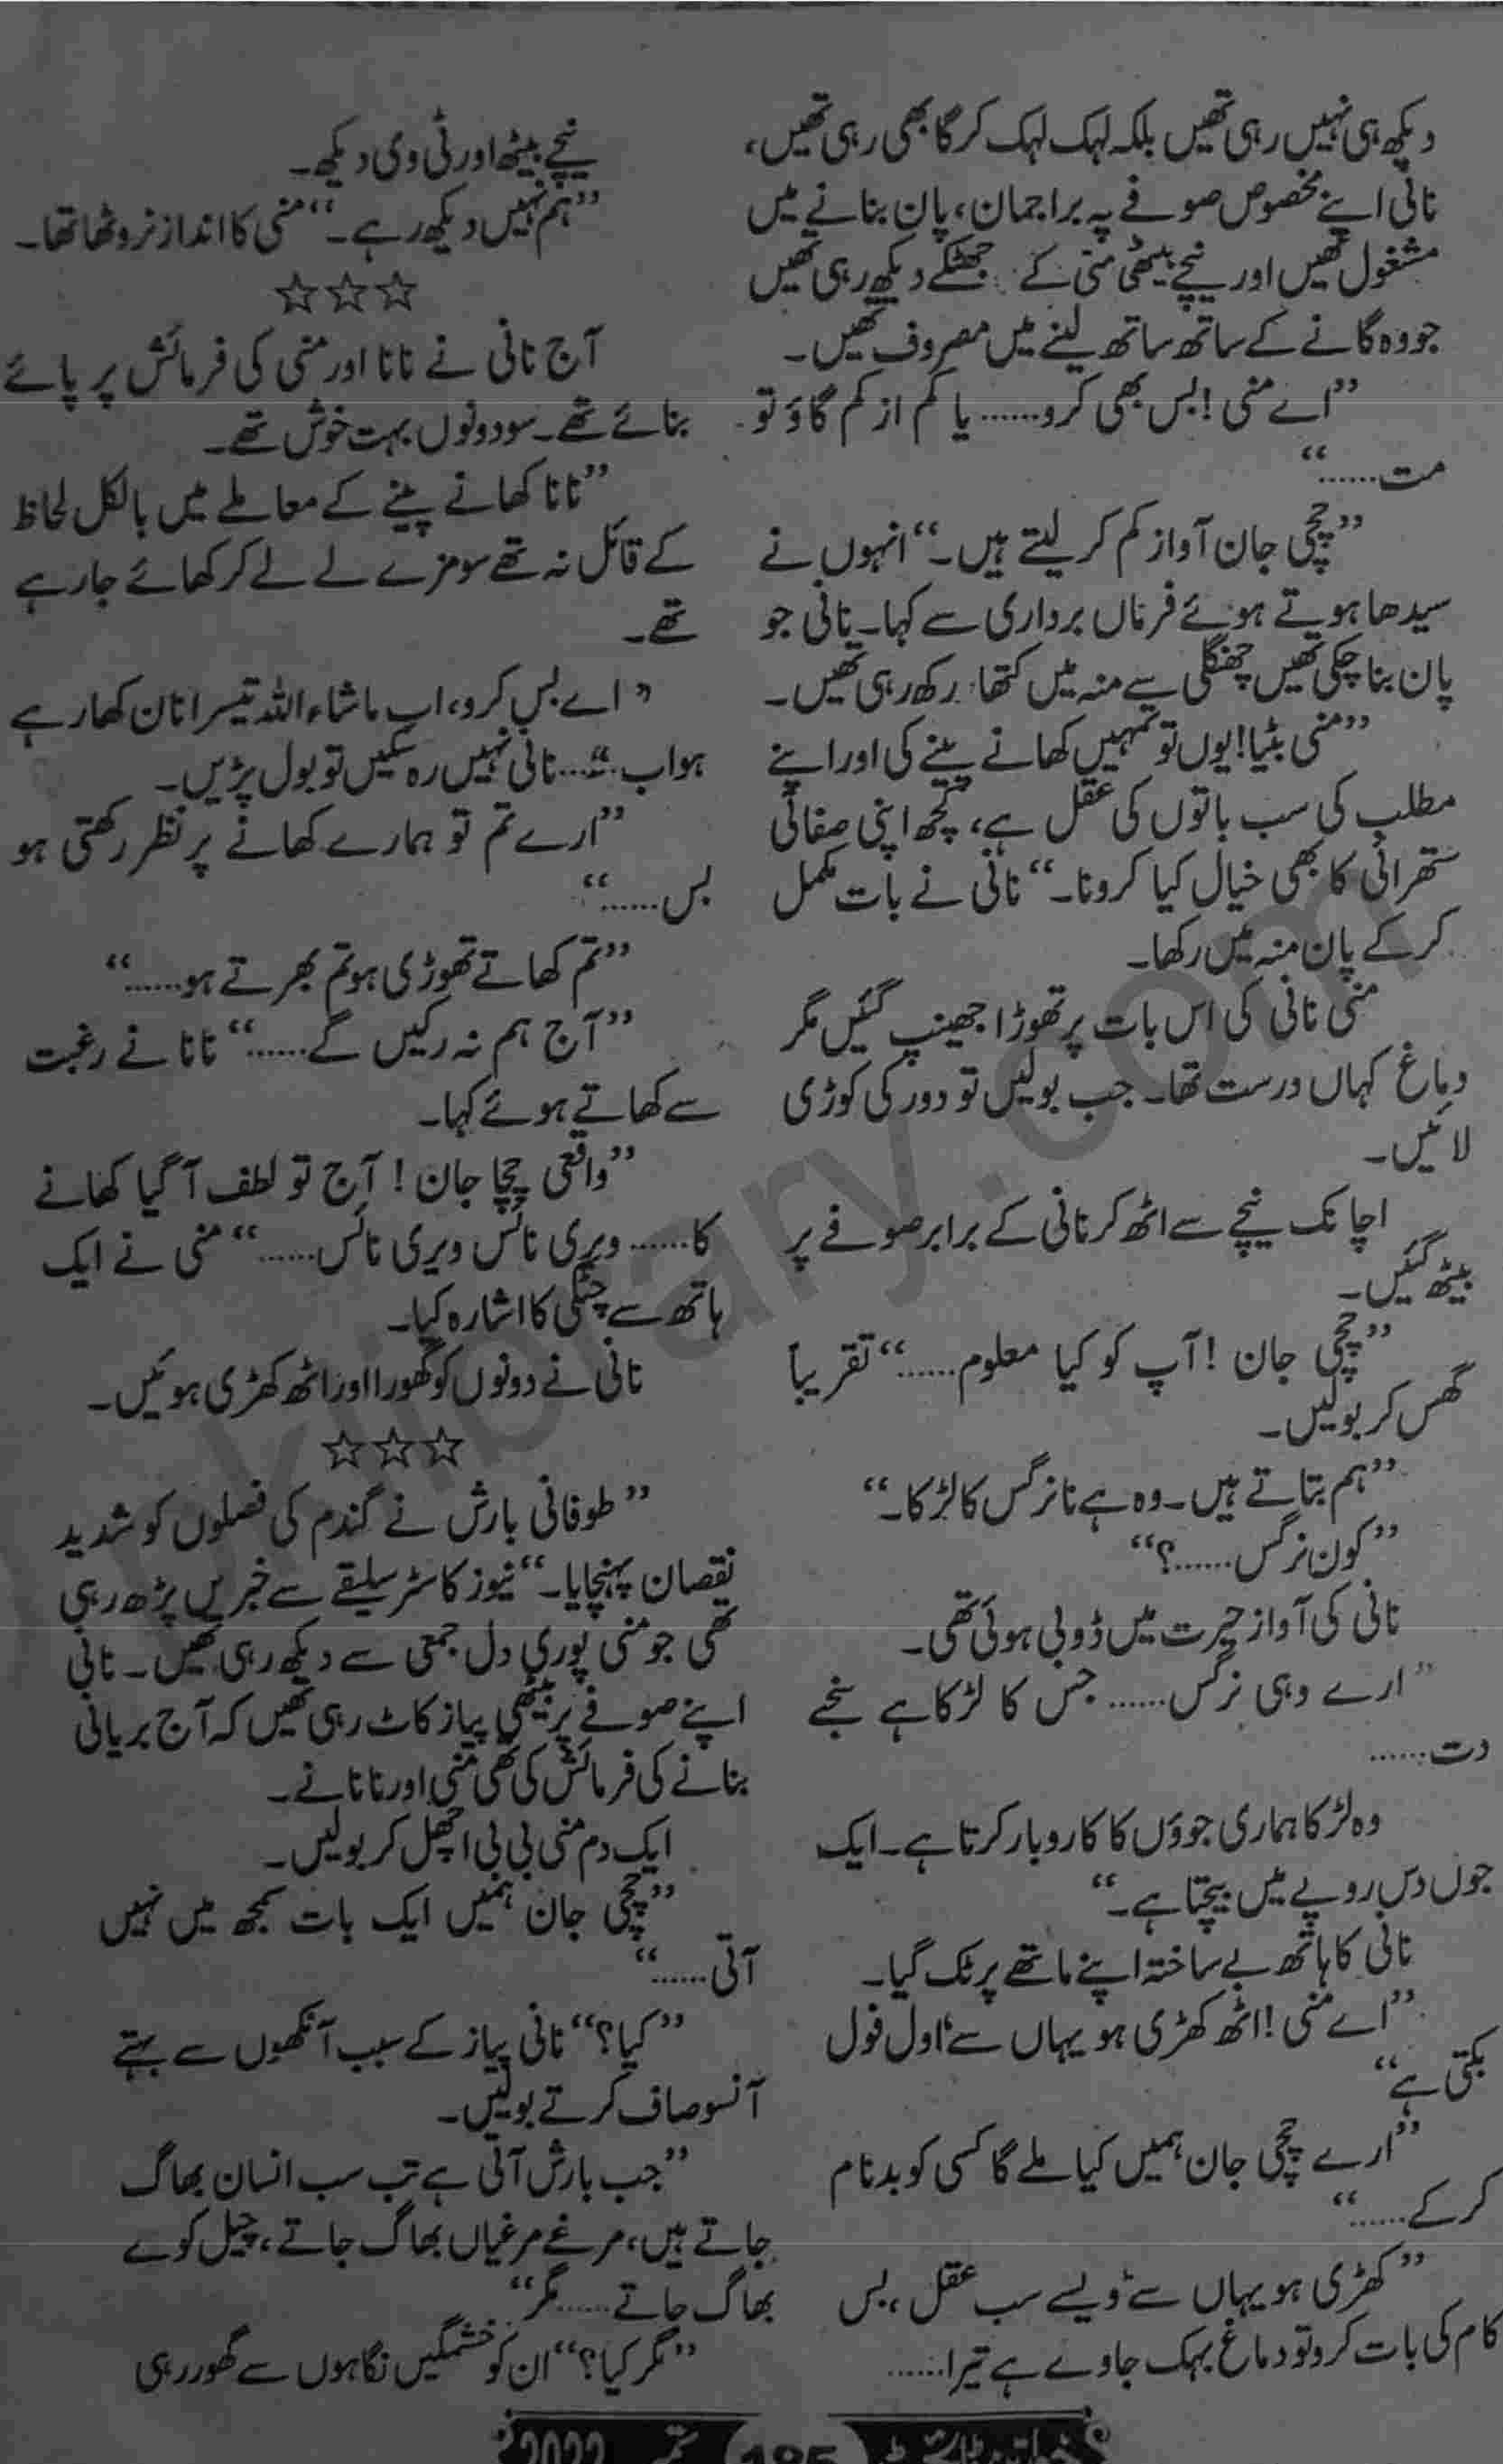 دیکھ ہی نہیں رہی تھیں بلکہ لہک لہک کر گا بھی رہی تھیں،
نانی اپنے مخصوص صوفے پہ براجمان، پان بنانے میں
مشغول تھیں اور نیچے بیٹھی منی کے جھٹکے دیکھ رہی تھیں
جو وہ گانے کے ساتھ ساتھ لینے میں مصروف تھیں۔
”اے منی! بس بھی کرو...... یا کم از کم گاؤ تو
مت......“
”چچی جان آواز کم کر لیتے ہیں۔“ انہوں نے
سیدھا ہوتے ہوئے فرماں برداری سے کہا۔ نانی جو
پان بنا چکی تھیں چھنگلی سے منہ میں کتھا رکھ رہی تھیں۔
”منی بٹیا! یوں تو تمہیں کھانے پینے کی اور اپنے
مطلب کی سب باتوں کی عقل ہے، کچھ اپنی صفائی
ستھرائی کا بھی خیال کیا کرو نا۔“ نانی نے بات مکمل
کر کے پان منہ میں رکھا۔
منی نانی کی اس بات پر تھوڑا جھینپ گئیں مگر
دماغ کہاں درست تھا۔ جب بولیں تو دور کی کوڑی
لائیں۔
اچانک نیچے سے اٹھ کر نانی کے برابر صوفے پر
بیٹھ گئیں۔
”چچی جان! آپ کو کیا معلوم......“ تقریباً
گھس کر بولیں۔
”ہم بتاتے ہیں۔ وہ ہے نا نرگس کا لڑکا۔“
”کون نرگس......؟“
نانی کی آواز حیرت میں ڈوبی ہوئی تھی۔
”ارے وہی نرگس...... جس کا لڑکا ہے سنجے
دت......
وہ لڑکا ہماری جوؤں کا کاروبار کرتا ہے۔ ایک
جوں دس روپے میں بیچتا ہے۔“
نانی کا ہاتھ بے ساختہ اپنے ماتھے پر ٹک گیا۔
”اے منی! اٹھ کھڑی ہو یہاں سے اول فول
بکتی ہے“
”ارے چچی جان ہمیں کیا ملے گا کسی کو بدنام
کر کے......“
”کھڑی ہو یہاں سے ویسے سب عقل، بس
کام کی بات کرو تو دماغ بہک جاوے ہے تیرا......
نیچے بیٹھ اور ٹی وی دیکھ۔
”ہم نہیں دیکھ رہے۔“ منی کا انداز نروٹھا تھا۔
☆☆☆
آج نانی نے نانا اور منی کی فرمائش پر پائے
بنائے تھے۔ سو دونوں بہت خوش تھے۔
”نانا کھانے پینے کے معاملے میں بالکل لحاظ
کے قائل نہ تھے سو مزے لے لے کر کھائے جا رہے
تھے۔
”اے بس کرو، اب ماشاء اللہ تیسرا نان کھا رہے
ہو اب......“ نانی نہیں رہ سکیں تو بول پڑیں۔
”ارے تم تو ہمارے کھانے پر نظر رکھتی ہو
بس......“
”تم کھاتے تھوڑی ہو تم بھرتے ہو......“
”آج ہم نہ رکیں گے......“ نانا نے رغبت
سے کھاتے ہوئے کہا۔
”واقعی چچا جان! آج تو لطف آ گیا کھانے
کا...... ویری نائس ویری نائس......“ منی نے ایک
ہاتھ سے چٹکی کا اشارہ کیا۔
نانی نے دونوں کو گھورا اور اٹھ کھڑی ہوئیں۔
☆☆☆
”طوفانی بارش نے گندم کی فصلوں کو شدید
نقصان پہنچایا۔“ نیوز کاسٹر سلیقے سے خبریں پڑھ رہی
تھی جو منی پوری دل جمعی سے دیکھ رہی تھیں۔ نانی
اپنے صوفے پر بیٹھی پیاز کاٹ رہی تھیں کہ آج بریانی
بنانے کی فرمائش کی تھی منی اور نانا نے۔
ایک دم منی بی بی اچھل کر بولیں۔
”چچی جان ہمیں ایک بات سمجھ میں نہیں
آتی......“
”کیا؟“ نانی پیاز کے سبب آنکھوں سے بہتے
آنسو صاف کرتے بولیں۔
”جب بارش آتی ہے تب سب انسان بھاگ
جاتے ہیں، مرغے مرغیاں بھاگ جاتے، چیل کوے
بھاگ جاتے...... مگر“
”مگر کیا؟“ ان کو خشمگیں نگاہوں سے گھور رہی
185
2022